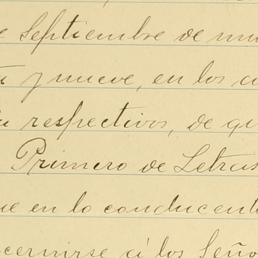 Septiembre de
y nueve, en los
respectivos, de
Primero de Letras
en lo conducent
cernirse á los Seño